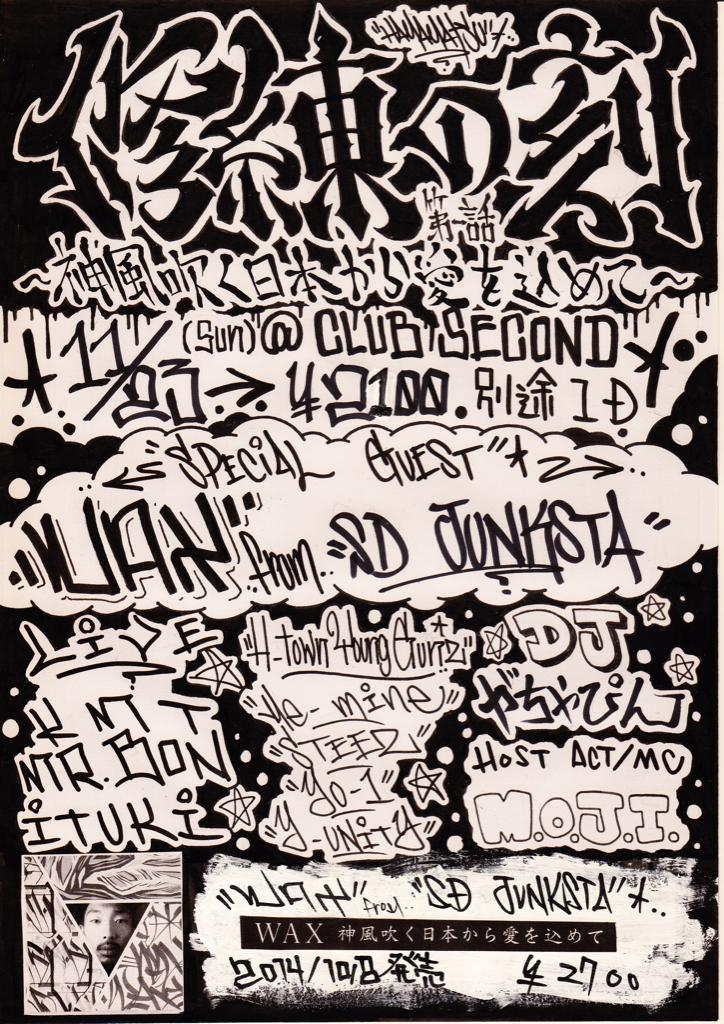 "HAMAMATSU"
修練の刻
第一話
〜神風吹く日本から愛を込めて〜
11/23 (Sun) @ CLUB SECOND
→ ¥2100. 別途 1D
"SPECIAL GUEST"
"WAX" from.. "SD JUNKSTA"
LIVE
KNTT
MR.BON
ITUKI
"H-town Young Gunz"
"Ye-mine"
"STEEZ"
"Yo-1"
"Y-UNITY"
DJ
がちゃぴん
HOST ACT/MC
M.O.J.I.
"WAX" from.. "SD JUNKSTA"..
WAX 神風吹く日本から愛を込めて
2014/10/8 発売 ¥2700